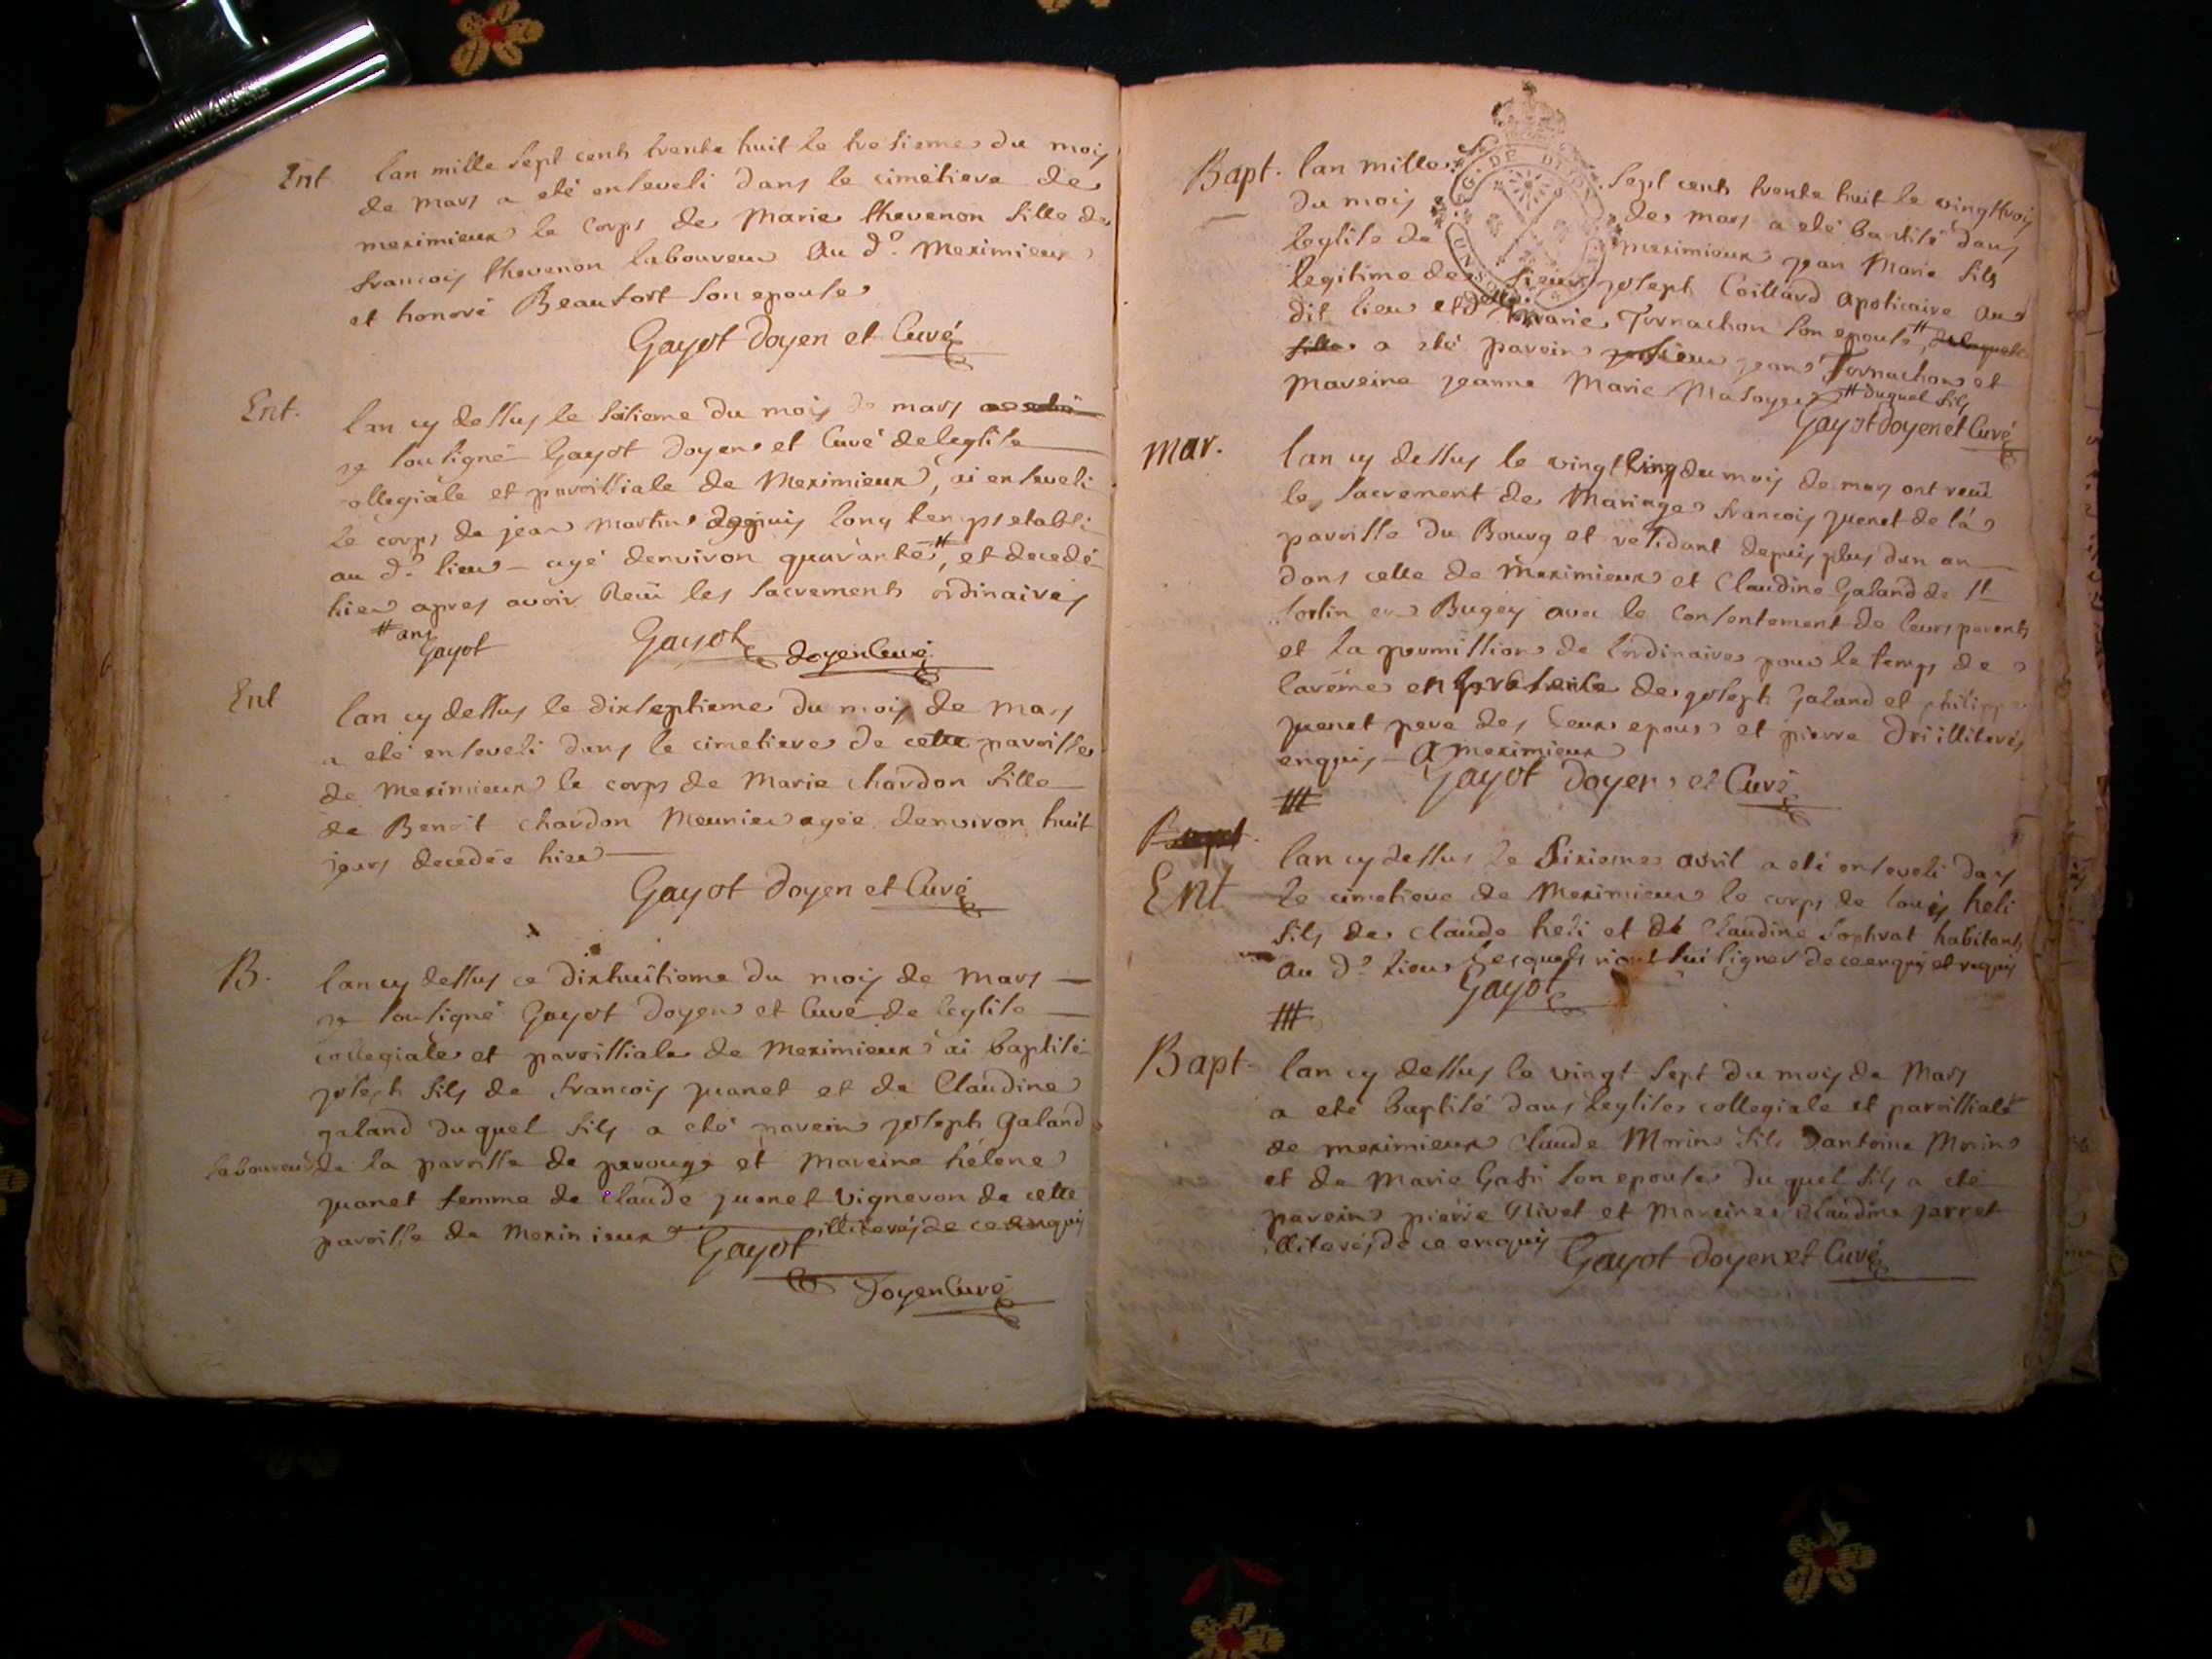 Ent. lan mille sept cents trente huit le tresieme du mois
de mars a eté enseveli dans le cimetiere de
meximieux le corps de Marie thevenon fille de
francois thevenon laboureur au d.º Meximieux
et honoré Beaufort son epouse
Gayot doyen et Curé
Ent. lan cy dessus le sesieme du mois de mars
je sousigné Gayot doyen et Curé de leglise
collegiale et paroissiale de Meximieux, ai enseveli
le corps de jean martin depuis long temps etabli
au d.º lieu agé denviron quarante #, et decedé
hier apres avoir Reçu les sacrements ordinaires
# ans
Gayot Gayot doyen Curé
Ent lan cy dessus le dixseptieme du mois de mars
a eté enseveli dans le cimetiere de cette paroisse
de Meximieux le corps de Marie chardon fille
de Benoit chardon Meunier agée denviron huit
jours decedée hier
Gayot doyen et Curé
B. lan cy dessus ce dixhuitieme du mois de mars
je sousigné Gayot doyen et Curé de leglise
collegiale et paroissiale de Meximieux ai baptisé
joseph fils de francois juenet et de Claudine
galand duquel fils a eté parein joseph Galand
laboureur de la paroisse de perouge et mareine hélene
juanet femme de claude juenet vigneron de cette
paroisse de Meximieux illiterés de ce enquis
Gayot
doyen Curé
Bapt. lan mille sept cents trente huit le vingttrois
du mois de mars a eté baptisé dans
leglise de meximieux jean Marie fils
legitime de sieur joseph Coillard apoticaire au
dit lieu et d.lle Marie Tornachon son epouse #, de laquelle
fille a eté parein sieur jean Tornachon et
mareine jeanne Marie # duquel fils
Gayot doyen et Curé
Mar. lan cy dessus le vingt cinq du mois de mars ont reçu
le sacrement de Mariage francois juenet de la
paroisse du Bourg et residant depuis plus dun an
dans celle de Meximieux et Claudine Galand de St
sorlin en Bugey avec le consentement de leurs parents
et la permission de lordinaire pour le temps de
careme en presence de joseph Galand et philippe
juenet pere des deux epoux et pierre illiterés
enquis a meximieux
Gayot doyen et Curé
Bapt.
Ent lan cy dessus le sixieme avril a eté enseveli dans
le cimetiere de Meximieux le corps de louis heli
fils de claude heli et de Claudine habitants
au d.º lieu lesquels n'ont sui signer de ce enquis et requis
Gayot
Bapt. lan cy dessus le vingt sept du mois de Mars
a eté baptisé dans leglise collegiale et paroissiale
de meximieux Claude Morin fils dantoine Morin
et de Marie son epouse duquel fils a eté
parein pierre Rivet et mareine Claudine jarret
illiterés de ce enquis Gayot doyen et Curé